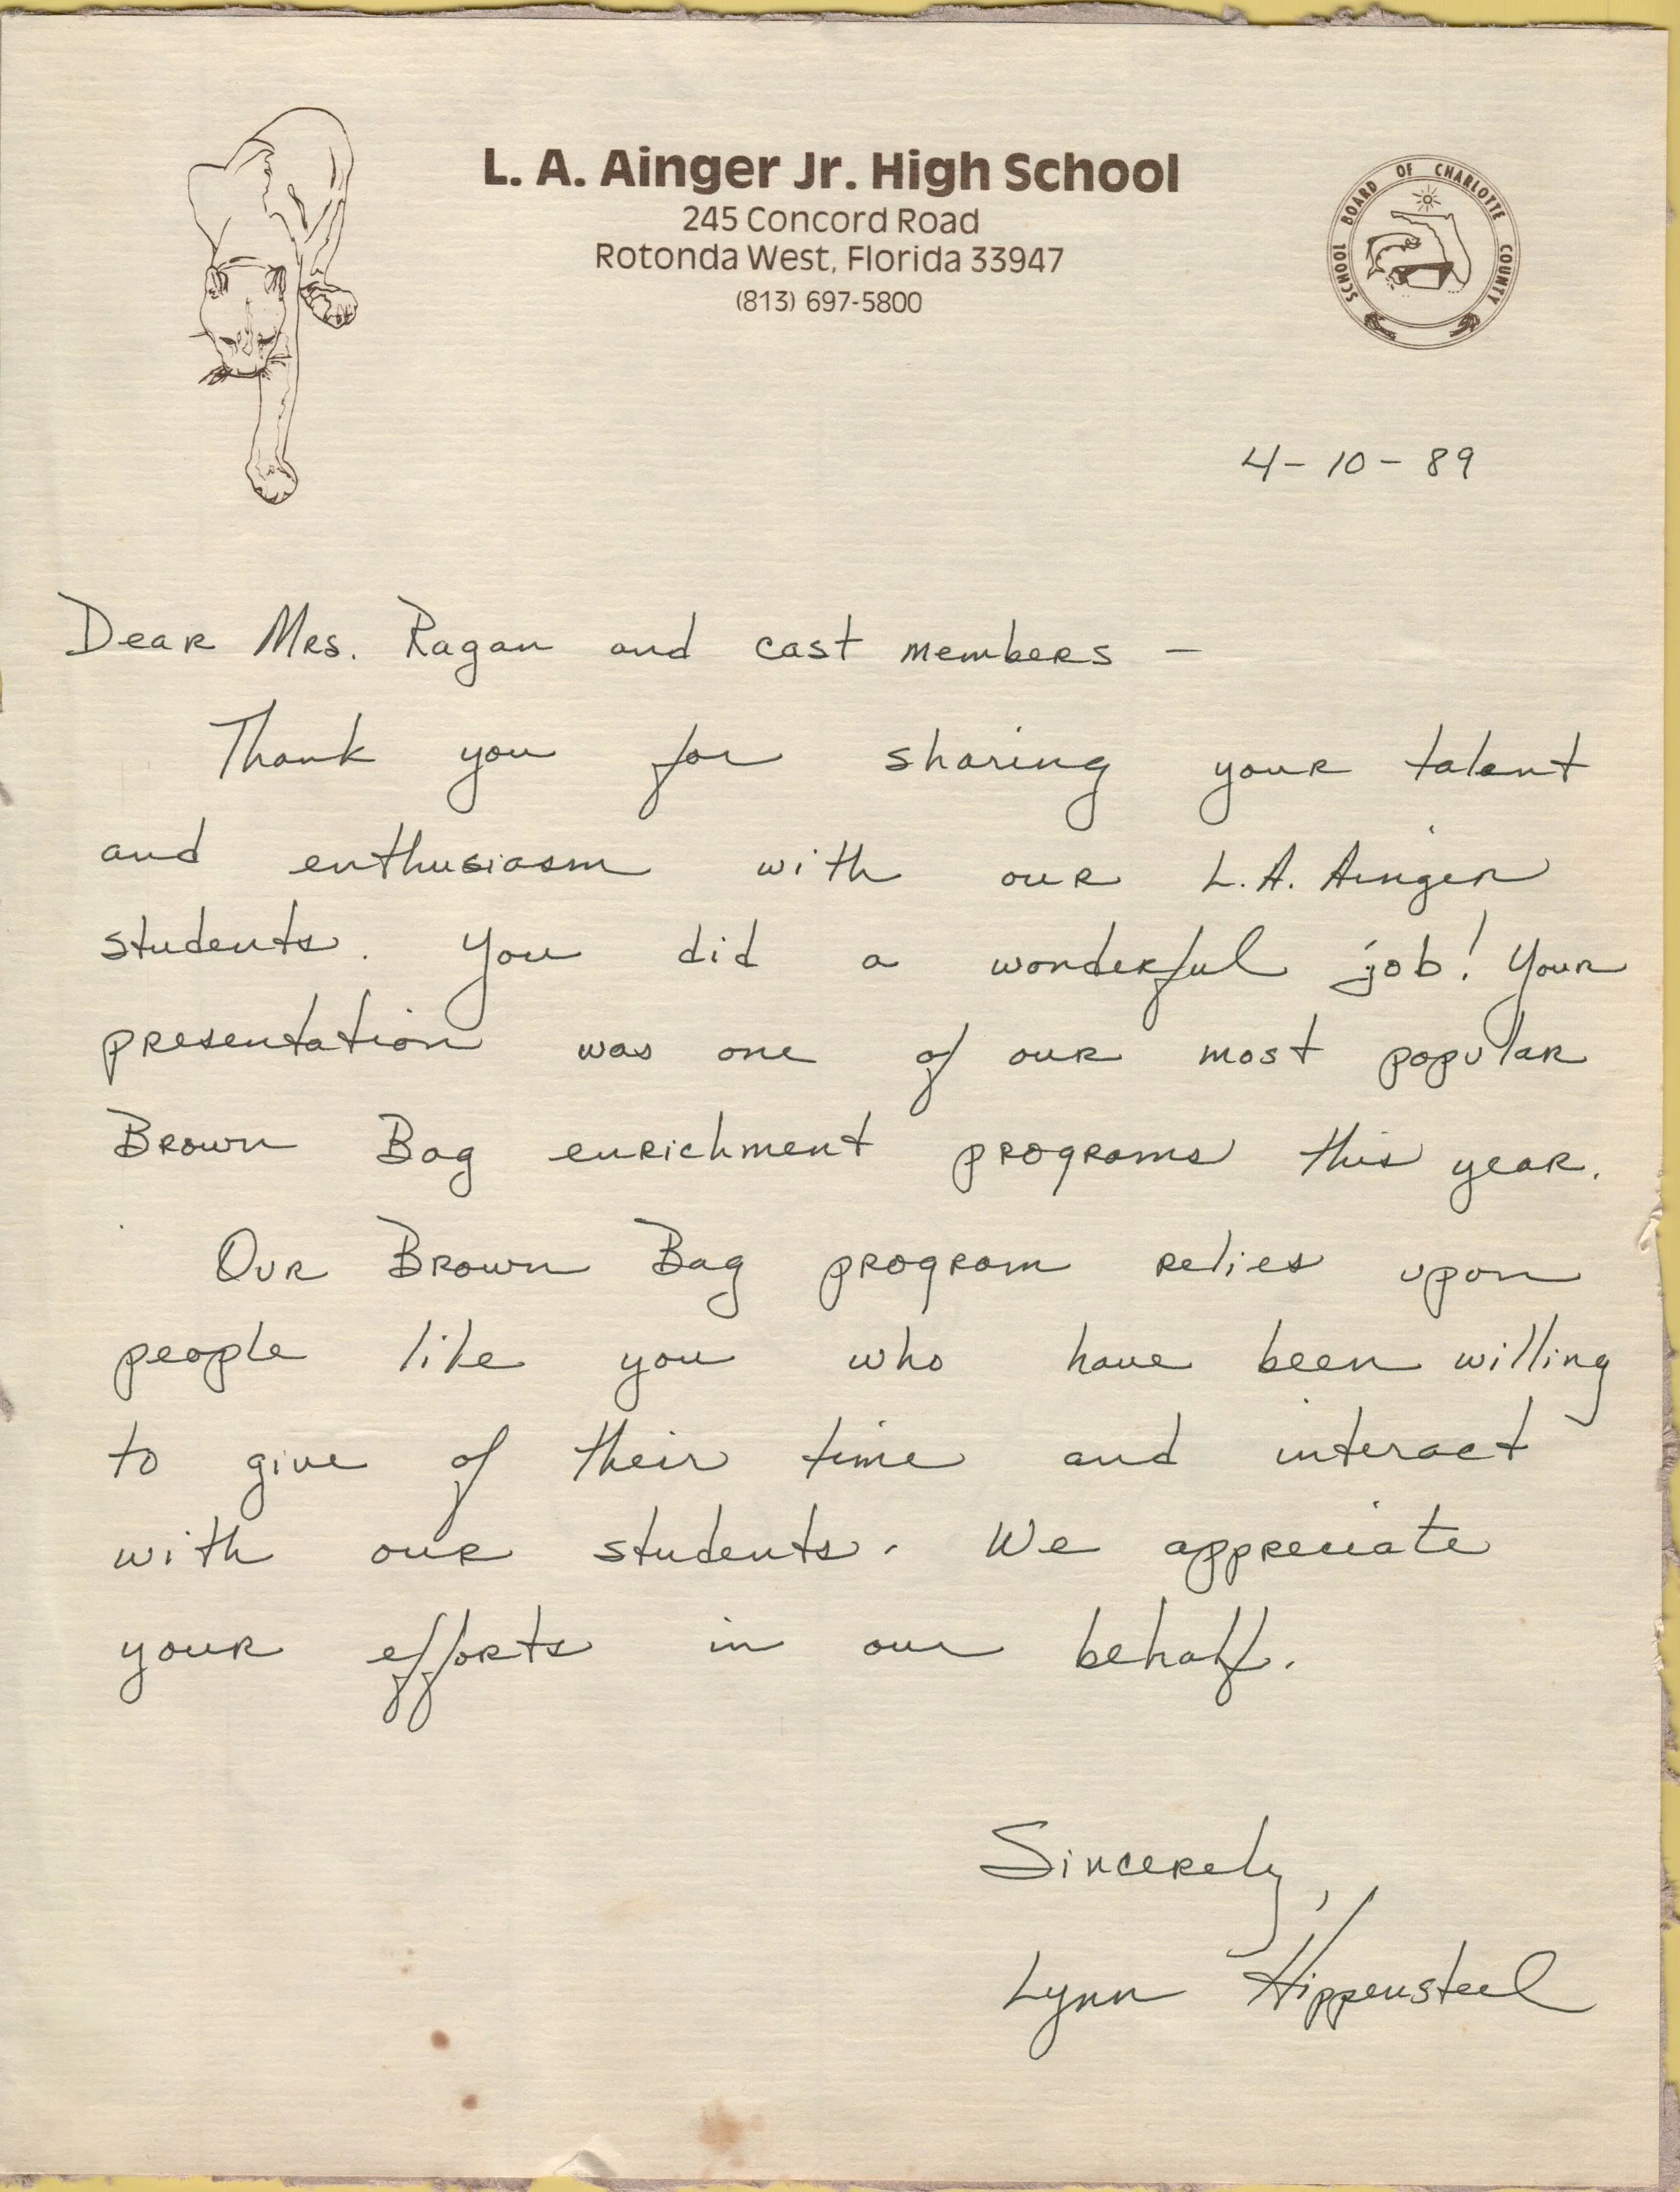 L. A. Ainger Jr. High School
245 Concord Road
Rotonda West, Florida 33947
(813) 697-5800
SCHOOL BOARD OF CHARLOTTE COUNTY
4-10-89
Dear Mrs. Ragan and cast members -
Thank you for sharing your talent
and enthusiasm with our L.A. Ainger
students. You did a wonderful job! Your
presentation was one of our most popular
Brown Bag enrichment programs this year.
Our Brown Bag program relies upon
people like you who have been willing
to give of their time and interact
with our students. We appreciate
your efforts in our behalf.
Sincerely,
Lynn Hippensteel